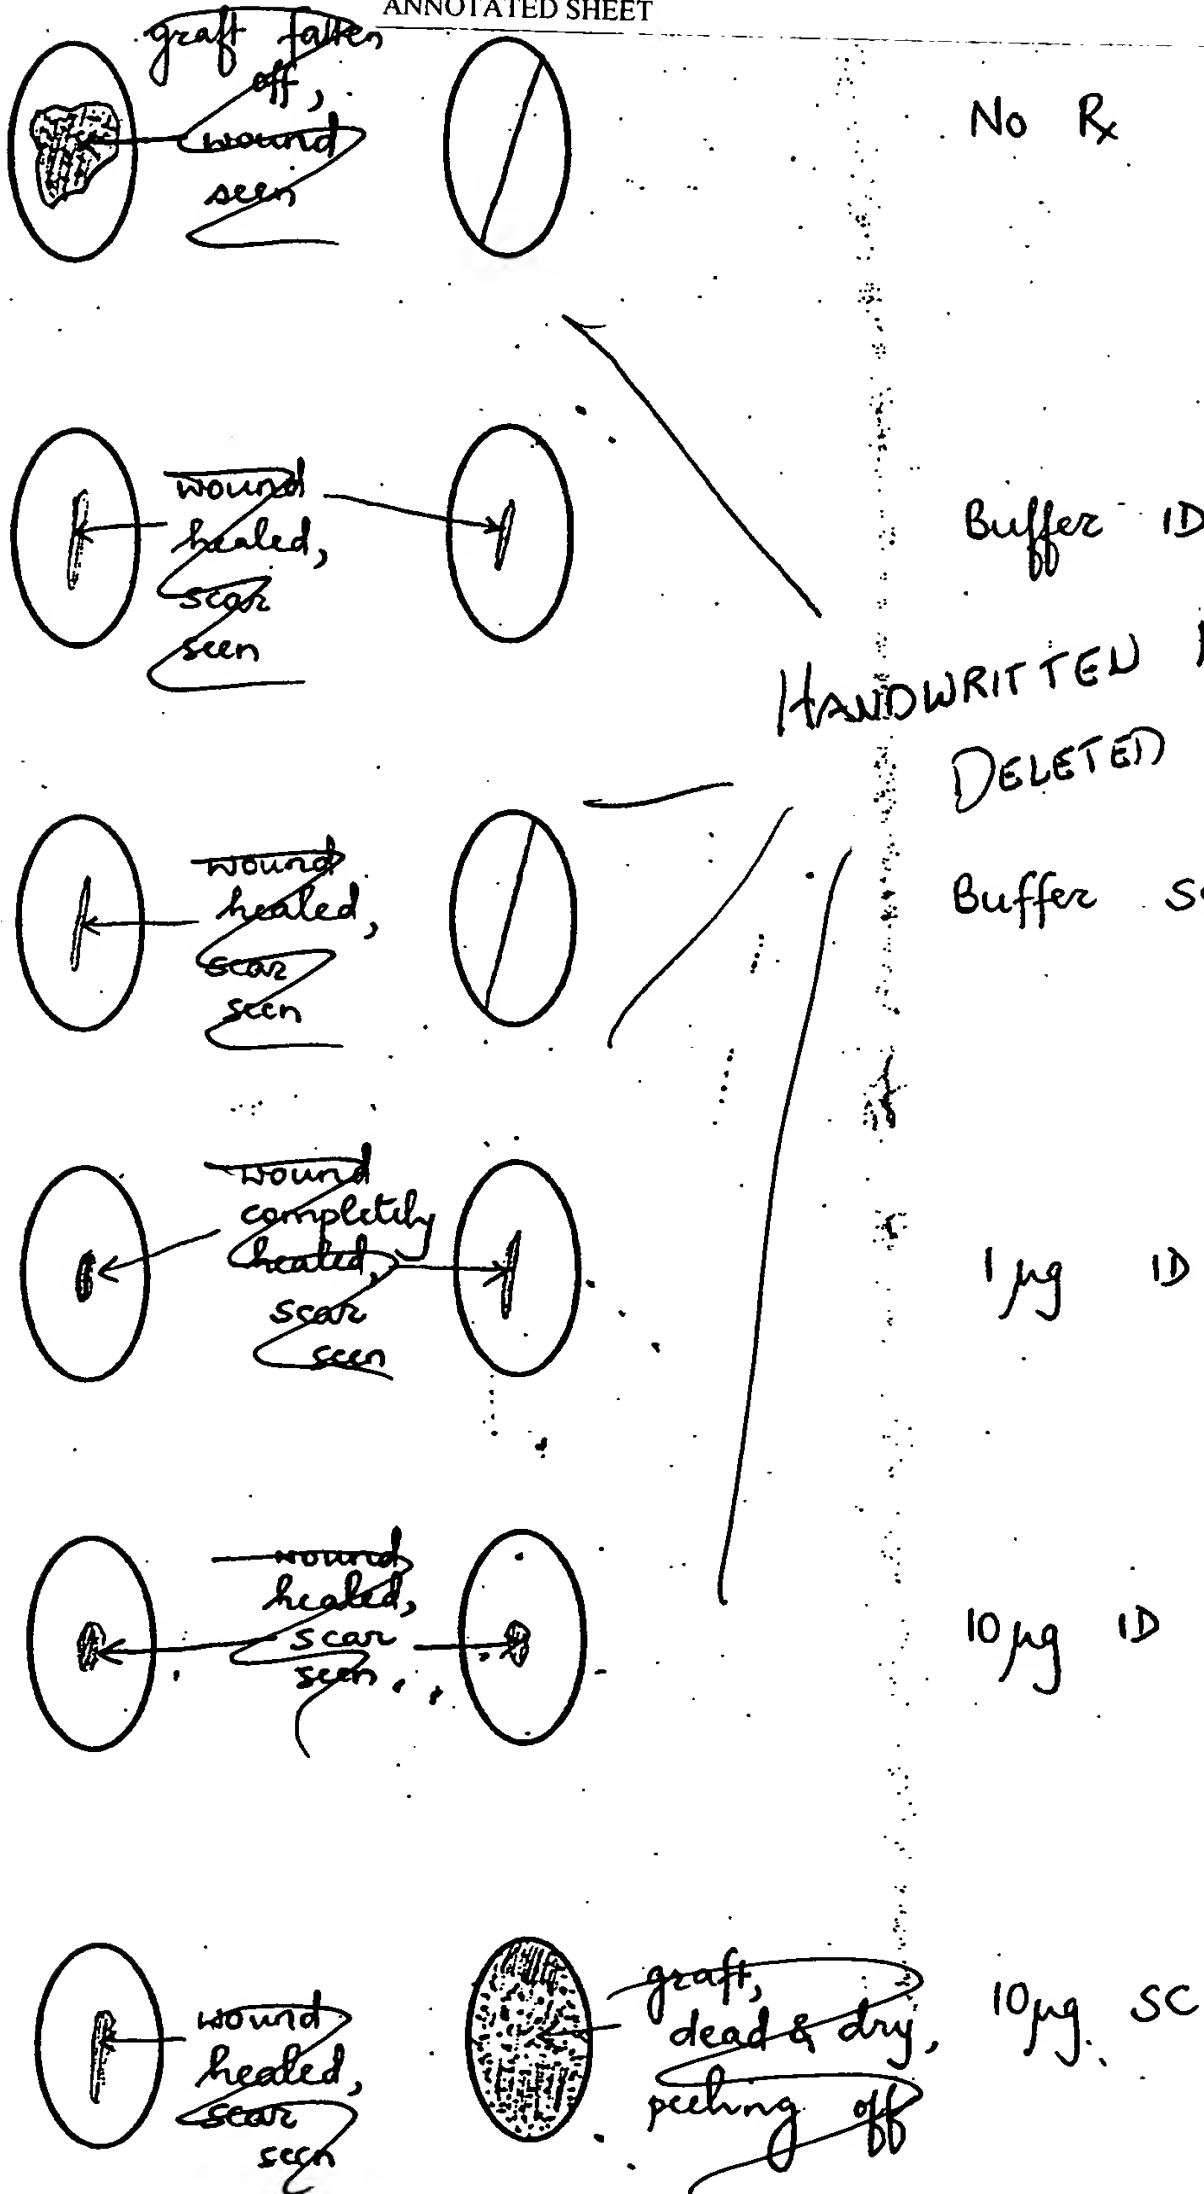 ANNOTATED SHEET
graft fallen
off,
wound
seen
No Rx
wound
healed,
scar
seen
Buffer ID
HANDWRITTEN
DELETED
wound
healed,
scar
seen
Buffer
wound
completely
healed,
scar
seen
1 µg ID
wound
healed,
scar
seen
10 µg ID
wound
healed,
scar
seen
graft,
dead & dry,
peeling off
10 µg. SC